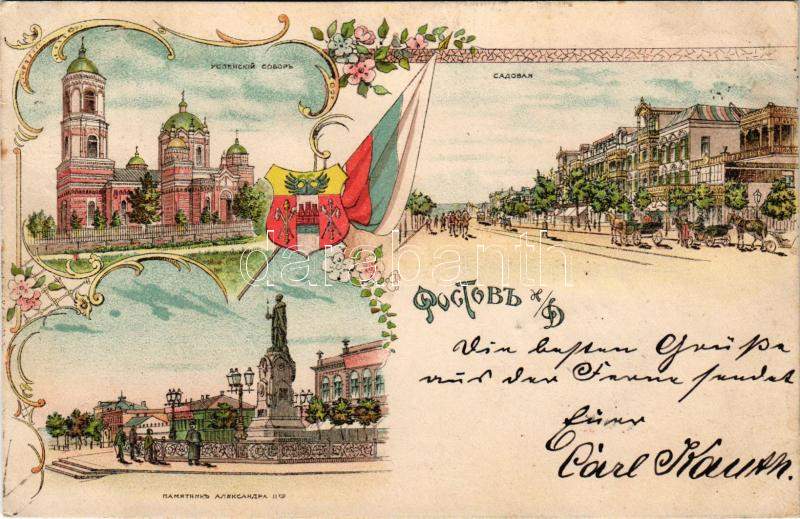 УСПЕНСКІЙ СОБОРЪ
САДОВАЯ
darabanth
РОСТОВЪ н/Д
Die besten Grüße
aus der Ferne sendet
Euer
Carl Kauth.
ПАМЯТНИКЪ АЛЕКСАНДРА II го